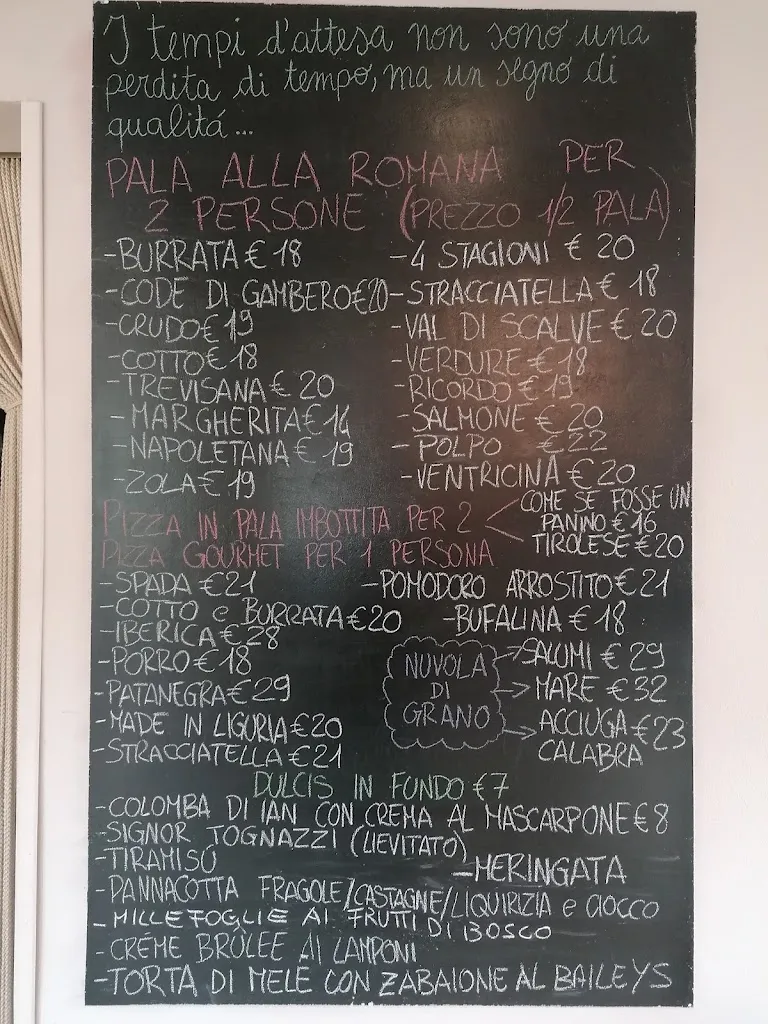 I tempi d'attesa non sono una
perdita di tempo, ma un segno di
qualitá...
PALA ALLA ROMANA PER
2 PERSONE (PREZZO 1/2 PALA)
-BURRATA € 18
-CODE DI GAMBERO €20
-CRUDO € 19
-COTTO € 18
-TREVISANA € 20
-MARGHERITA € 14
-NAPOLETANA € 19
-ZOLA € 19
-4 STAGIONI € 20
-STRACCIATELLA € 18
-VAL DI SCALVE € 20
-VERDURE € 18
-RICORDO € 19
-SALMONE € 20
-POLPO € 22
-VENTRICINA € 20
PIZZA IN PALA IMBOTTITA PER 2
COME SE FOSSE UN
PANINO € 16
TIROLESE € 20
PIZZA GOURMET PER 1 PERSONA
-SPADA € 21
-COTTO e BURRATA € 20
-IBERICA € 28
-PORRO € 18
-PATANEGRA € 29
-MADE IN LIGURIA € 20
-STRACCIATELLA € 21
-POMODORO ARROSTITO € 21
-BUFALINA € 18
NUVOLA
DI
GRANO
SALUMI € 29
MARE € 32
ACCIUGA € 23
CALABRA
DULCIS IN FUNDO € 7
-COLOMBA DI IAN CON CREMA AL MASCARPONE € 8
-SIGNOR TOGNAZZI (LIEVITATO)
-TIRAMISÚ
-MERINGATA
-PANNACOTTA FRAGOLE/CASTAGNE/LIQUIRIZIA e CIOCCO
-MILLEFOGLIE AI FRUTTI DI BOSCO
-CRÉME BRÛLEE AI LAMPONI
-TORTA DI MELE CON ZABAIONE AL BAILEYS